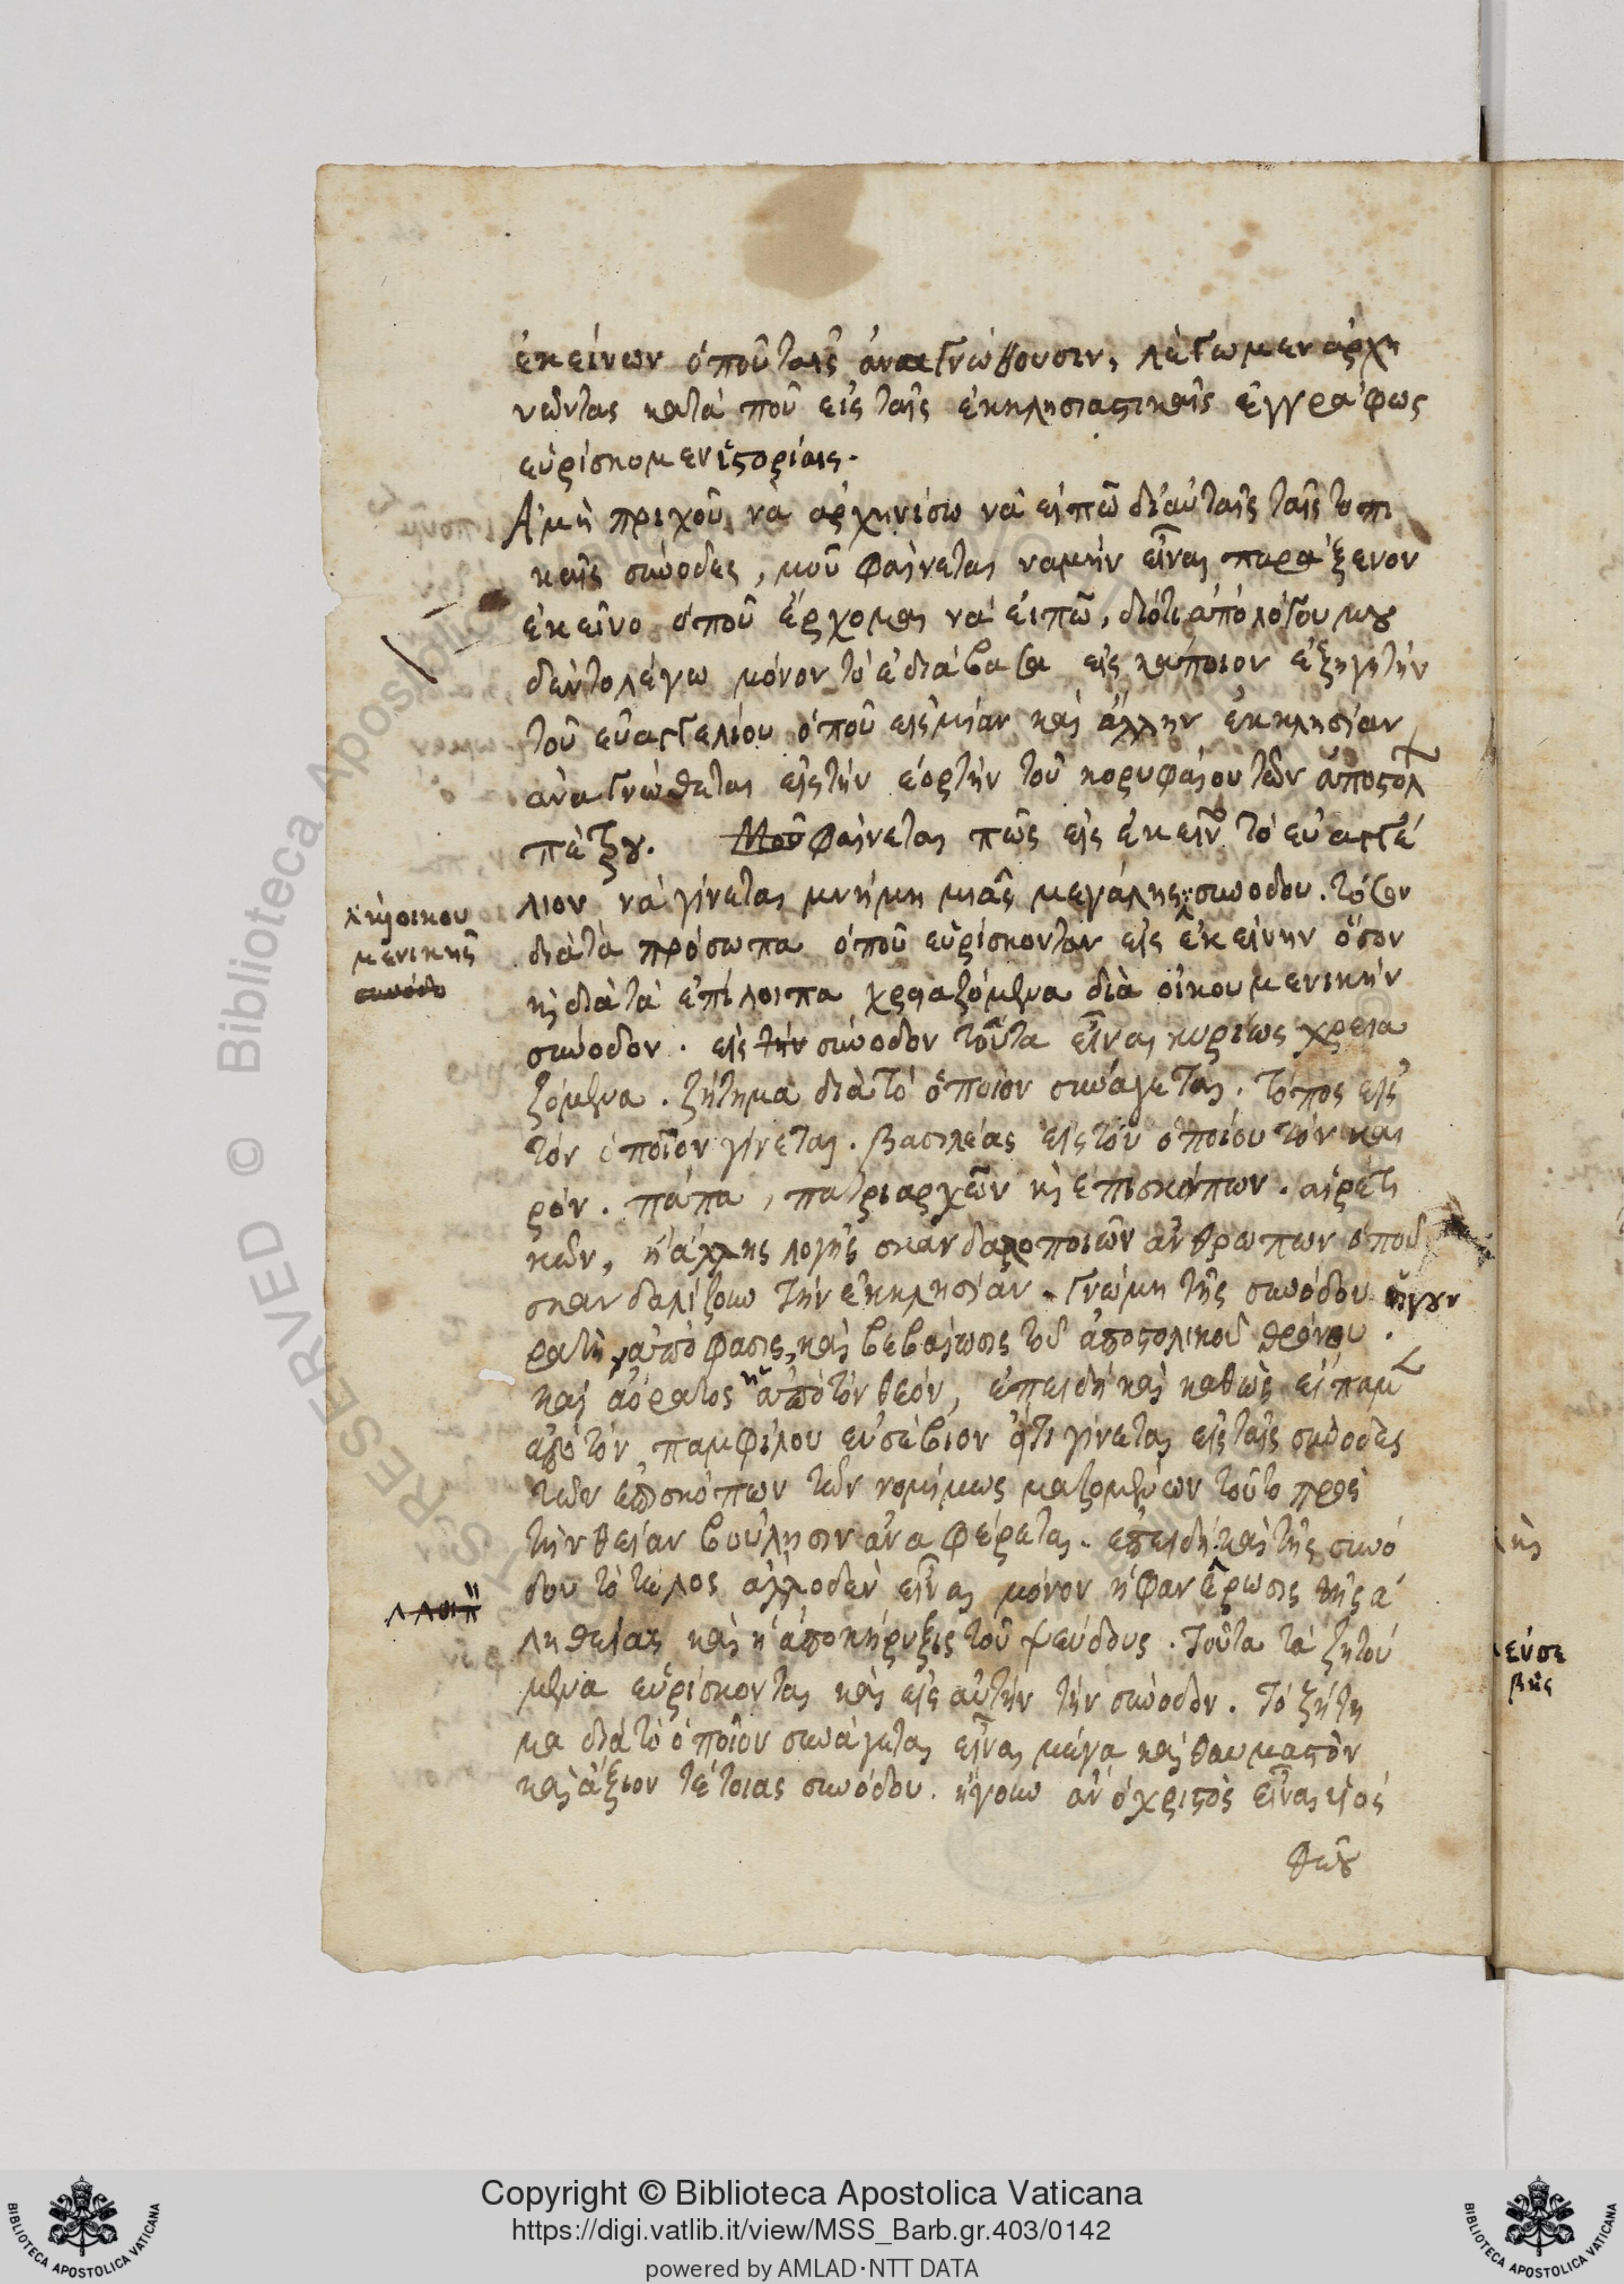 ἐκείνων ὁποῦ ταῖς ἀναγνώθουσιν, λέγωμεν ἀρχη
νῶντας κατά ποῦ εἰς ταῖς ἐκκλησιαστικαῖς ἐγγράφως
εὑρίσκομεν ἱστορίαις.
Ἀμή πριχοῦ νὰ ἀρχηνίσω νὰ εἰπῶ δι' αὐταῖς ταῖς τοπι
καῖς σύνοδες, μοῦ φαίνεται νὰ μὴν εἶναι παράξενον
ἐκεῖνο ὁποῦ ἔρχομαι νά εἰπῶ, διότι ἀπό λόγου μου
δέν το λέγω μόνον τό ἐδιάβασα εἰς κάποιον ἐξηγητήν
τοῦ εὐαγγελίου ὁποῦ εἰς μίαν καί ἄλλην ἐκκλησίαν
ἀναγνώθεται εἰς τήν ἑορτήν τοῦ κορυφαίου τῶν ἀποστολ
πέτρου. Μοῦ φαίνεται πῶς εἰς ἐκεῖν τό εὐαγγέ
λιον νά γίνεται μνήμη μιᾶς μεγάλης συνοδου. τόσον
κὴ οἰκου
μενικῆς
συνόδο
διὰ τὰ πρόσωπα ὁποῦ εὑρίσκονταν εἰς ἐκείνην ὅσον
κὶ διὰ τὰ ἐπίλοιπα χρειαζόμενα διὰ οἰκουμενικήν
σύνοδον. εἰς τήν σύνοδον τοῦτα εἶναι κυρίως χρεια
ζόμενα. ζήτημα διὰ τό ὁποῖον συνάγεται. τόπος εἰς
τόν ὁποῖον γίνεται. βασιλέας εἰς τοῦ ὁποίου τόν και
ρόν. πάπα, πατριαρχῶν κὶ ἐπισκόπων. αἱρετι
κῶν, ἤ ἄλλης λογῆς σκανδαλοποιῶν ἀνθρώπων ὁποῦ
σκανδαλίζουν τήν ἐκκλησίαν. Γνώμη τῆς συνόδου ἤγουν
ρατὴ ἀπόφασις, καὶ βεβαίωσις τοῦ ἀποστολικοῦ θρόνου.
καί ἀόρατος ἀπὸ τόν θεόν, ἐπειδή καὶ καθὼς εἴπαμ
ἀπό τόν παμφίλου εὐσέβιον ὅτι γίνεται εἰς ταῖς σύνοδες
τῶν ἐπισκόπων τῶν νομίμως μαζομένων τοῦτο πρὸς
τὴν θείαν βούλησιν ἀναφέρεται. ἐπειδή καὶ τῆς συνό
δου τό τέλος ἄλλο δὲν εἶναι μόνον ἡ φανέρωσις τῆς ἀ
ληθείας καὶ ἡ ἀποκήρυξις τοῦ ψεύδους. Τοῦτα τά ζητού
μενα εὑρίσκονται καὶ εἰς αὐτήν τήν σύνοδον. Τό ζήτη
μα διὰ τὸ ὁποῖον συνάγεται εἶναι μέγα καὶ θαυμαστὸν
καὶ ἄξιον τέτοιας συνόδου. ἤγουν ἄν ὁ χριστός εἶναι υἱός
θεοῦ
κὶς
εὐσε
βῆς
RESERVED © Biblioteca Apostolica
Copyright © Biblioteca Apostolica Vaticana
https://digi.vatlib.it/view/MSS_Barb.gr.403/0142
powered by AMLAD·NTT DATA
BIBLIOTECA APOSTOLICA VATICANA
BIBLIOTECA APOSTOLICA VATICANA